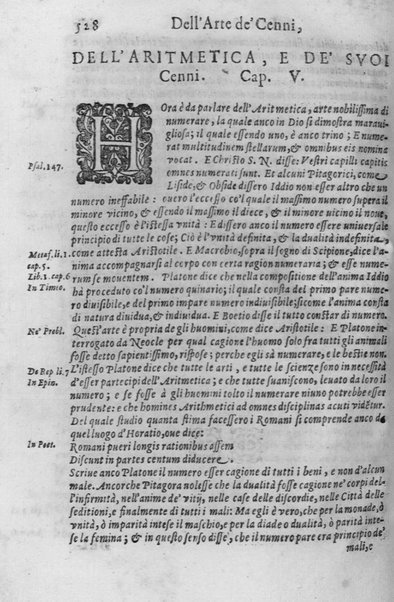 528 Dell'Arte de' Cenni,
DELL'ARITMETICA, E DE' SVOI
Cenni. Cap. V.
HOra è da parlare dell'Aritmetica, arte nobilissima di
numerare, la quale anco in Dio si dimostra maraui-
gliosa; il quale essendo uno, è anco trino; E nume-
rat multitudinem stellarum, & omnibus eis nomina
Psal. 147.
vocat. E Christo S. N. disse: Vestri capilli capitis
omnes numerati sunt. Et alcuni Pitagorici, come
Liside, & Obside dissero Iddio non esser altro che un
numero ineffabile: ouero l'eccesso co'l quale il massimo numero supera il
minore vicino, & essendo il massimo il diece, & il minore uicino il noue,
questo eccesso è l'istessa vnità: E dissero anco il numero essere uniuersale
principio di tutte le cose; Ciò è l'vnità definita, & la dualità indefinita,
Metaf. li. 1.
cap. 5.
come attesta Aristotile. E Macrobio, sopra il sogno di Scipione, dice l'a-
Lib. 1. cap. 6
nima accompagnarsi al corpo con certa ragion numeraria; & esse nume-
rum se mouentem. Platone dice che nella compositione dell'anima Iddio
In Timeo.
hà proceduto co'l numero quinario; il quale consta del primo pare nume-
ro diuisibile, e del primo impare numero indiuisibile; si come l'anima consta
di natura diuidua, & indiuidua. E Boetio disse il tutto constar di numero.
Ne' Probl.
Quest'arte è propria de gli huomini, come dice Aristotile: E Platone in-
terrogato da Neocle per qual cagione l'huomo solo fra tutti gli animali
fosse detto sapientissimo, rispose; perche egli sà numerare, e le bestie non.
De Rep li. 7
L'istesso Platone dice che tutte le arti, e tutte le scienze sono in necessità
In Epin.
d'esser partecipi dell'Aritmetica; e che tutte suaniscono, leuato da loro il
numero; e se fosse à gli huomini tolto il numerare niuno potrebbe esser
prudente: e che homines Arithmetici ad omnes disciplinas acuti vidẽtur.
Del quale studio quanta stima facessero i Romani si comprende anco da
quel luogo d'Horatio, oue dice:
In Poet.
Romani pueri longis rationibus assem
Discunt in partes centum diducere.
Scriue anco Platone il numero esser cagione di tutti i beni, e non d'alcun
male. Ancorche Pitagora nolesse che la dualità fosse cagione ne' corpi del-
l'infirmità, nell'anime de' vitij, nelle case delle discordie, nelle Città delle
seditioni, e finalmente di tutti i mali: Ma egli è vero, che per la monade, ò
vnità, ò imparità intese il maschio, e per la diade o dualità, ò parità inte-
se la femina; & in questo senso disse, che il numero pare era principio de'
mali, e